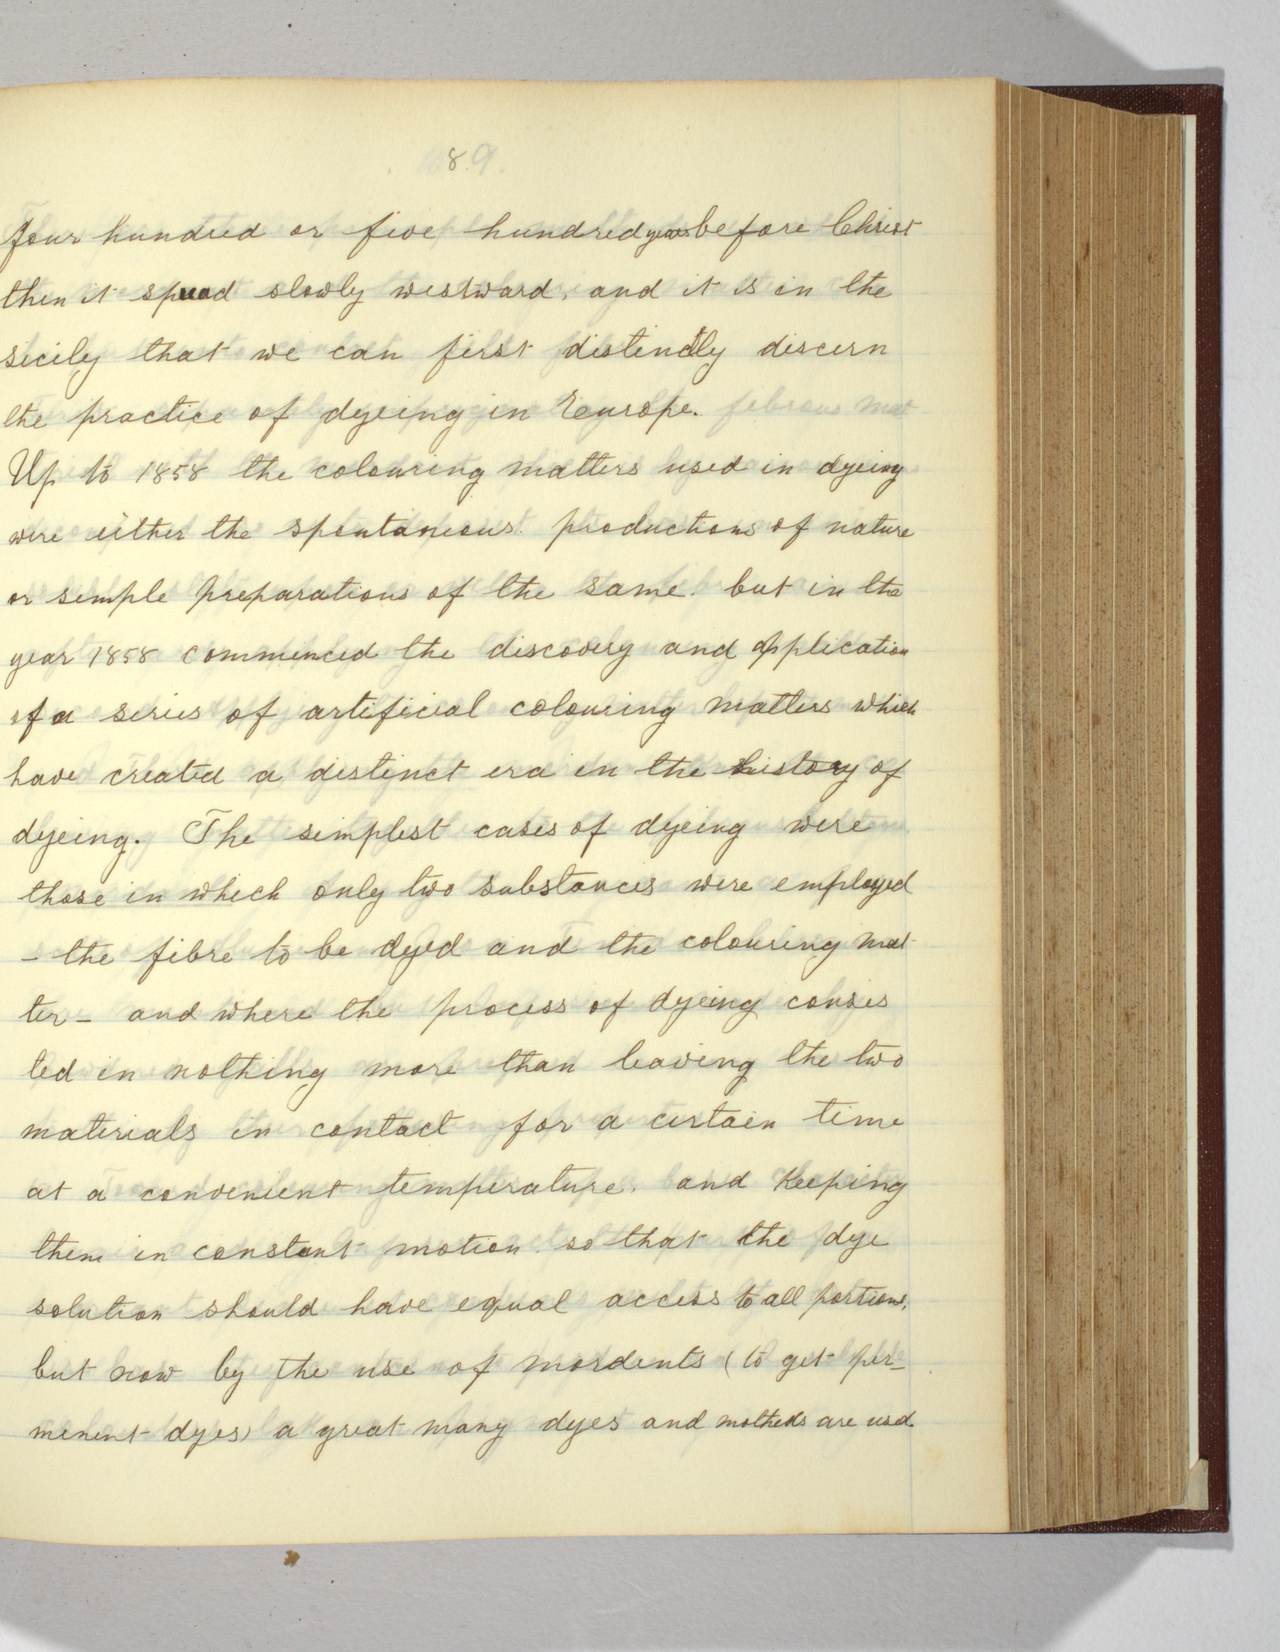 89.
four hundred or five hundred years before Christ
then it spread slowly westward, and it is in the
sicily that we can first distinctly discern
the practice of dyeing in Europe.
Up to 1858 the colouring matters used in dyeing
were either the spontaneous productions of nature
or simple preparations of the same. but in the
year 1858 commenced the discovery and application
of a series of artificial colouring matters which
have created a distinct era in the history of
dyeing. The simplest cases of dyeing were
those in which only two substances were employed
– the fibre to be dyed and the colouring mat-
ter – and where the process of dyeing consis
ted in nothing more than leaving the two
materials in contact for a certain time
at a convenient temperature. and keeping
them in constant motion so that the dye
solution should have equal access to all portions,
but now by the use of mordents (to get per-
menent dyes) a great many dyes and metheds are used